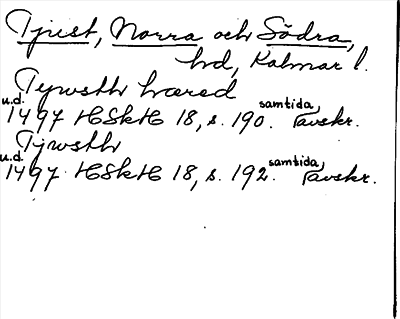 Tjust, Norra och Södra,
hd, Kalmar l.
Tywsth hæred
u.d. 1497 HSkH 18, s. 190. samtida avskr.
Tjwsth
u.d. 1497 HSkH 18, s. 192. samtida avskr.